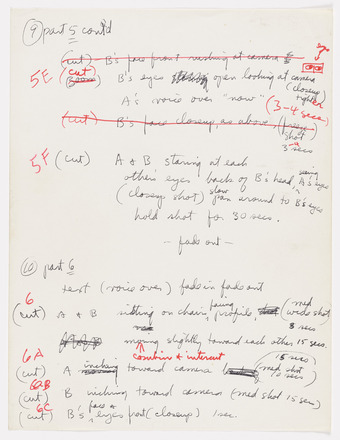 (9) part 5 cont'd
(cut) B's face front rushing at camera
5E (cut) B's eyes open looking at camera (closeup tighter)
A's voice over "now" (3-4 secs)
(cut) B's face closeup as above, (freeze shot 3 secs
5F (cut) A & B staring at each
other's eyes back of B's head, seeing A's eyes
(closeup shot) slow pan around to B's eyes
hold shot for 30 secs.
— fade out —
(10) part 6
text (voice over) fade in fade out
6
(cut) A & B sitting on chairs, facing profile, (med wide shot 8 secs
moving slightly toward each other 15 secs.
combine & intercut
6A
(cut) A inching toward camera (med shot 15 secs)
6B
(cut) B inching toward camera (med shot 15 sec)
6C
(cut) B's face & eyes front (closeup) 1 sec.